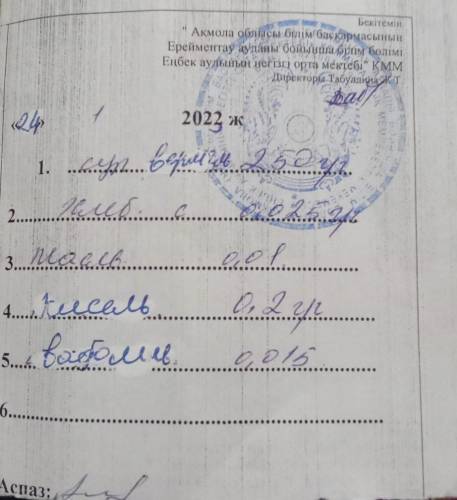 Бекітемін
" Ақмола облысы білім басқармасының
Ерейментау ауданы бойынша білім бөлімі
Еңбек ауылының негізгі орта мектебі" КММ
Директоры Ж.Т.
«24» 1 2022 ж
1. суп вермишль 250 гр
2. Хлеб с 0,025 гр
3. 0,01
4. Кисель 0,2 гр
5. 0,015
6.
Аспаз: